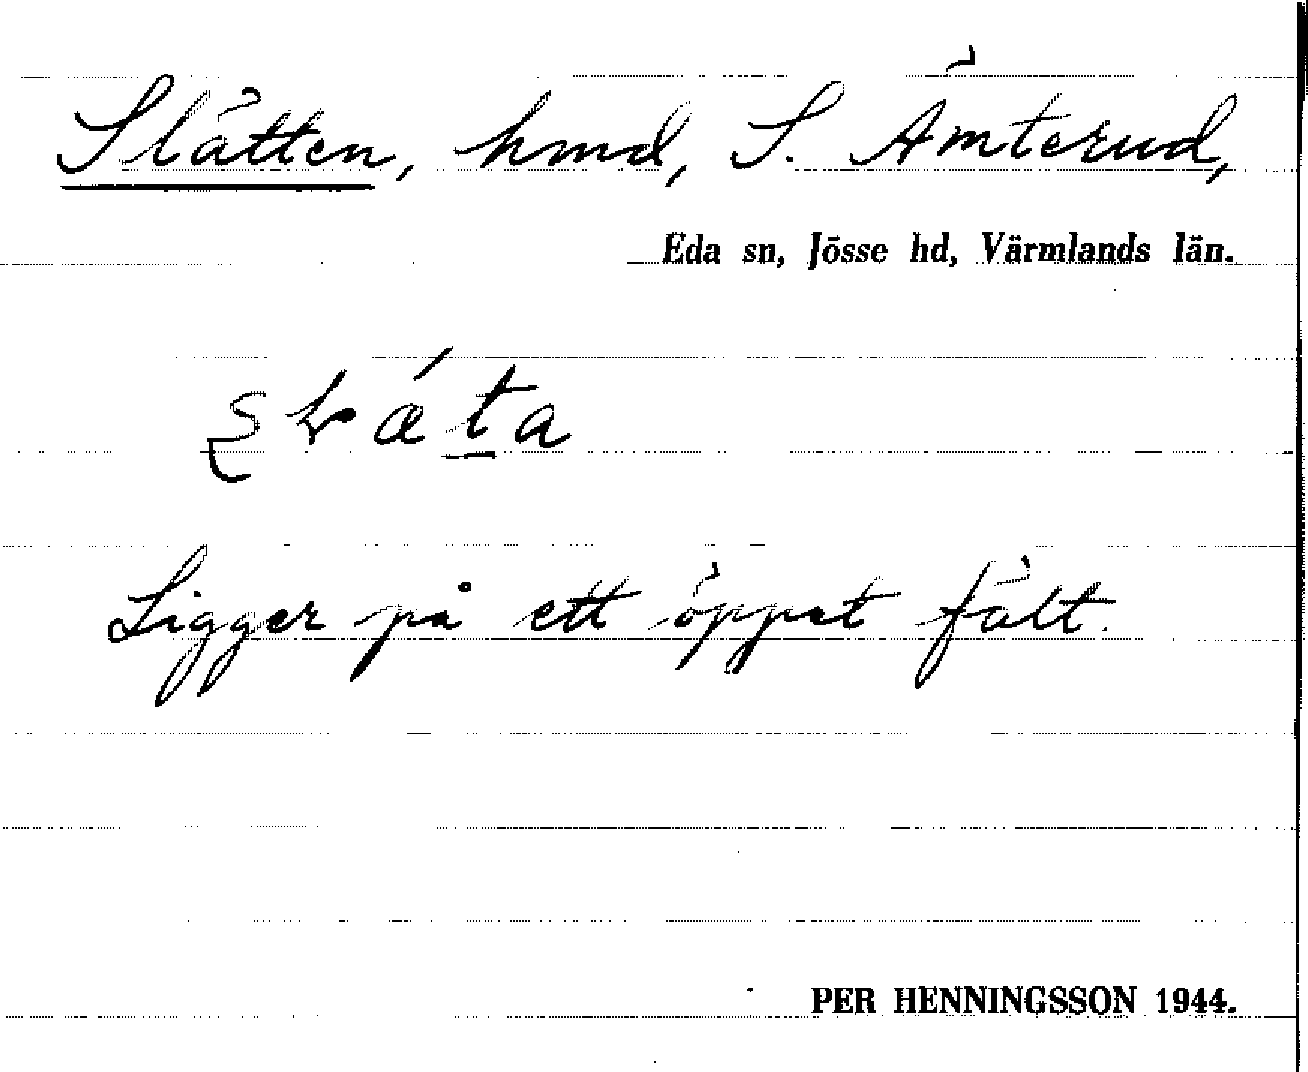 Slätten, hmd, S. Ämterud,
Eda sn, Jösse hd, Värmlands län.
Ligger på ett öppet fält.
PER HENNINGSSON 1944.